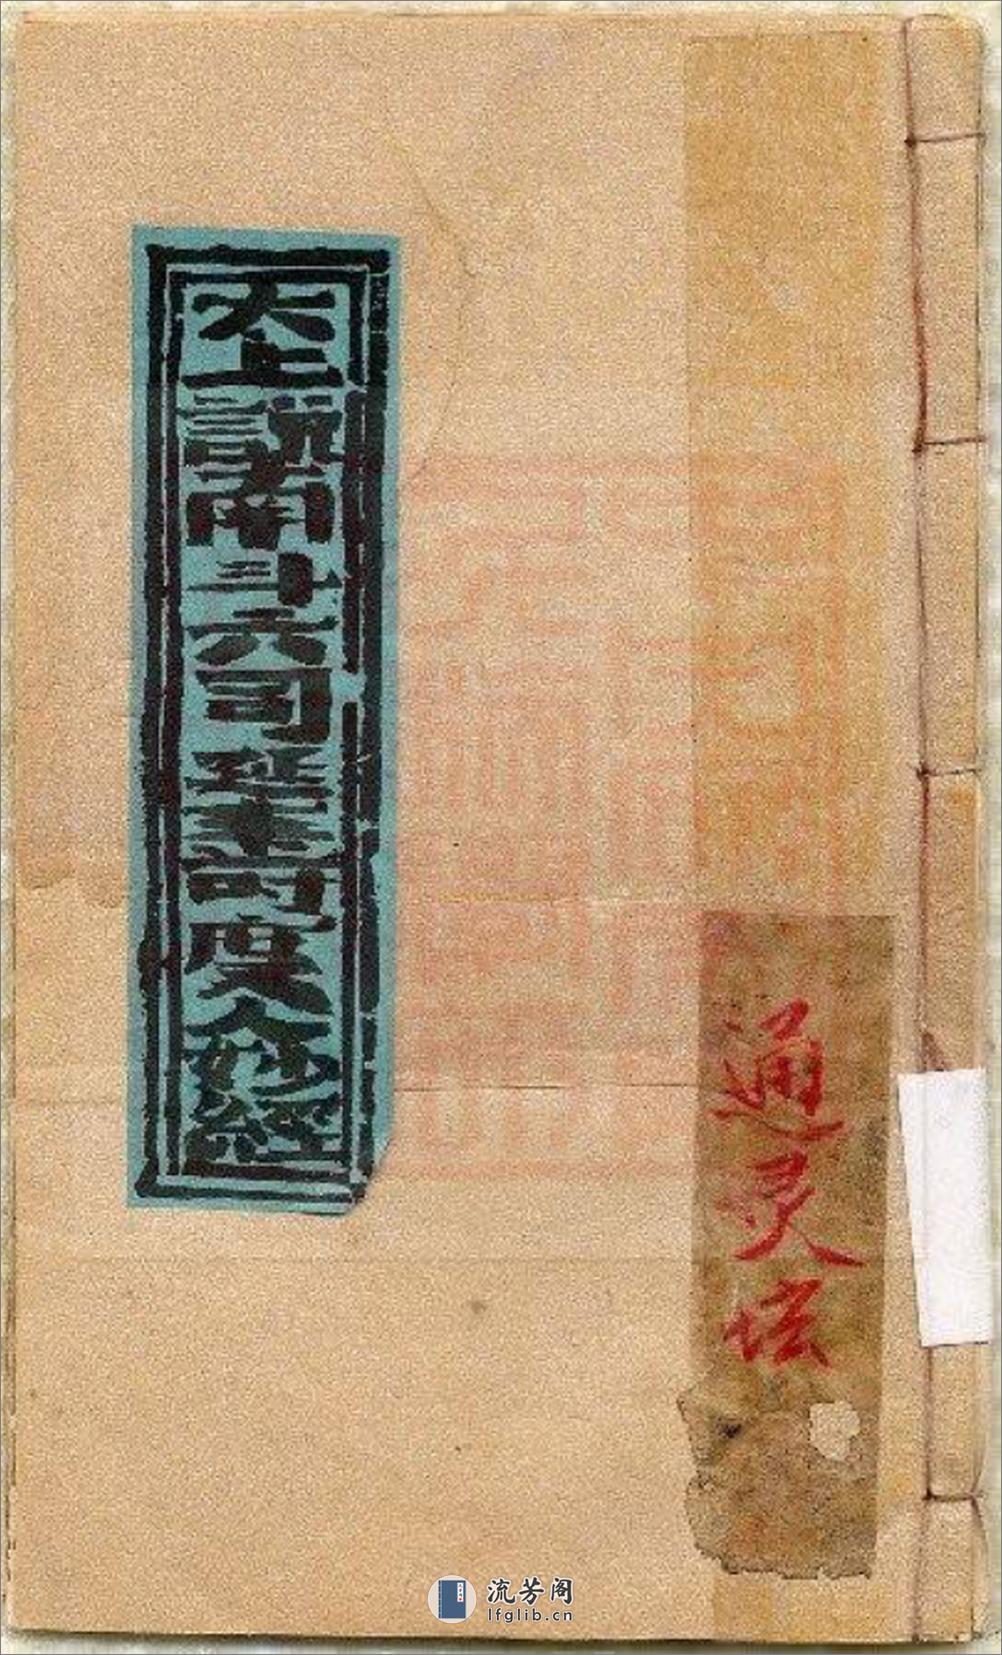 通灵坛
太上說南斗六司延壽度人妙經
流芳阁
lfglib.cn